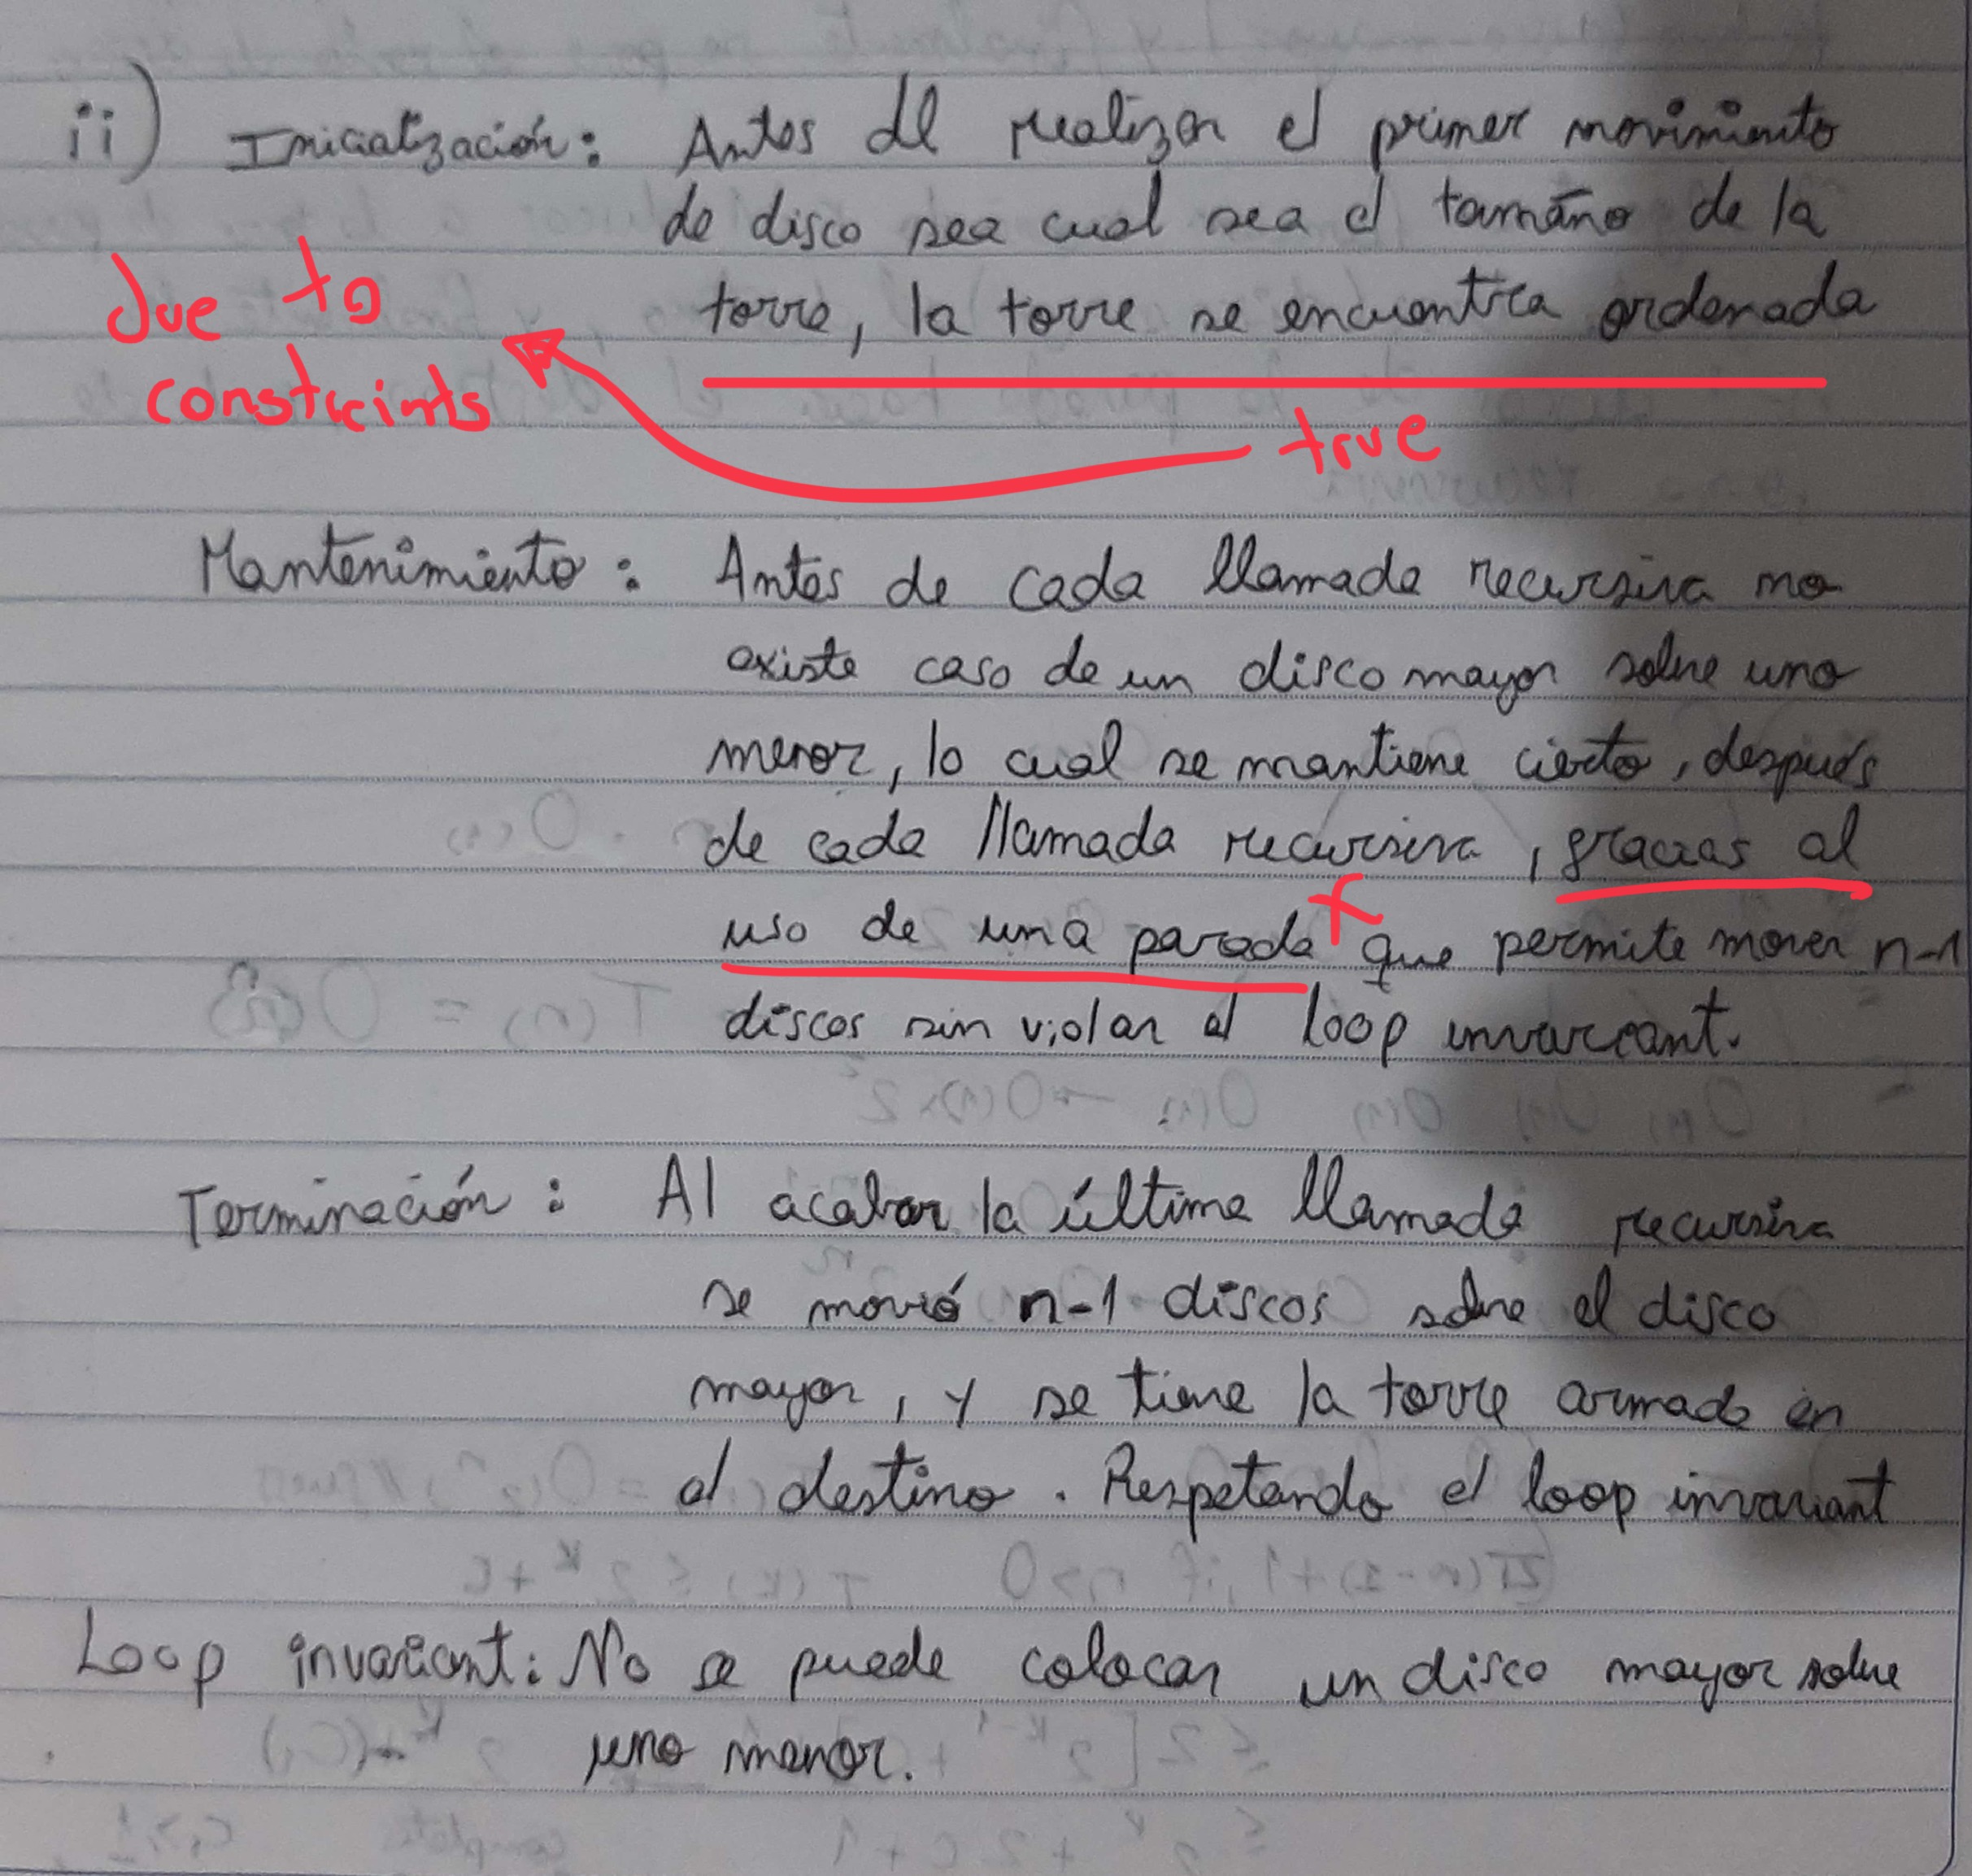 ii) Inicialización: Antes de realizar el primer movimiento
de disco sea cual sea el tamaño de la
torre, la torre se encuentra ordenada
due to
constreints
true
Mantenimiento: Antes de cada llamada recursiva no
existe caso de un disco mayor sobre uno
menor, lo cual se mantiene cierto, después
de cada llamada recursiva, gracias al
uso de una parada que permite mover n-1
discos sin violar el loop invariant.
Terminación: Al acabar la última llamada recursiva
se movió n-1 discos sobre el disco
mayor, y se tiene la torre armada en
el destino. Respetando el loop invariant
Loop invariant: No se puede colocar un disco mayor sobre
uno menor.